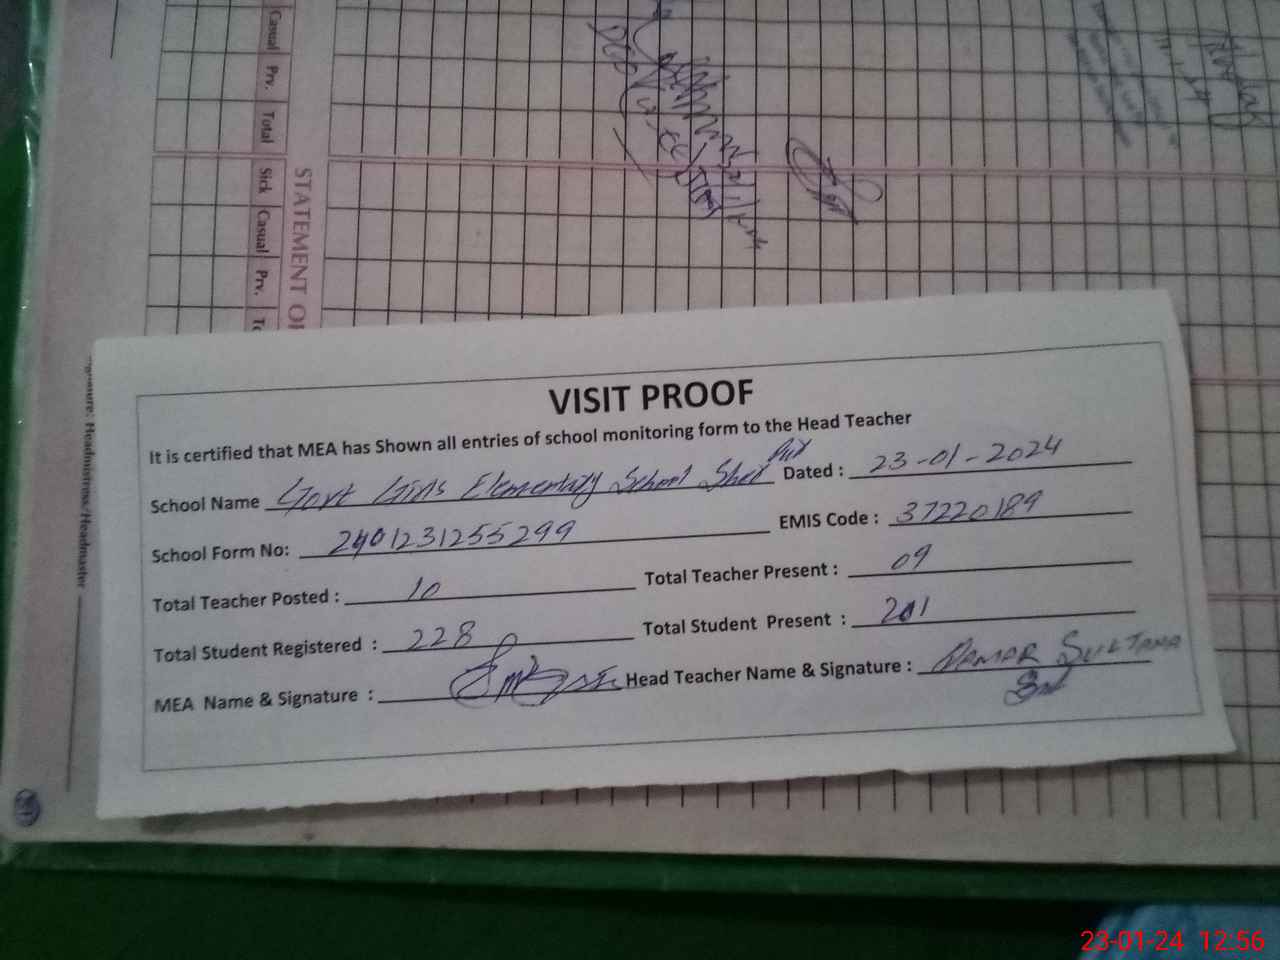 Casual Prv. Total Sick Casual Prv.
STATEMENT OF
Headmistress/Headmaster
VISIT PROOF
It is certified that MEA has Shown all entries of school monitoring form to the Head Teacher
School Name Govt Girls Elementary School Sher Pur Dated : 23-01-2024
School Form No: 2401231255299 EMIS Code : 37220189
Total Teacher Posted : 10 Total Teacher Present : 09
Total Student Registered : 228 Total Student Present : 201
MEA Name & Signature : Head Teacher Name & Signature : Qamar Sultana
23-01-24 12:56